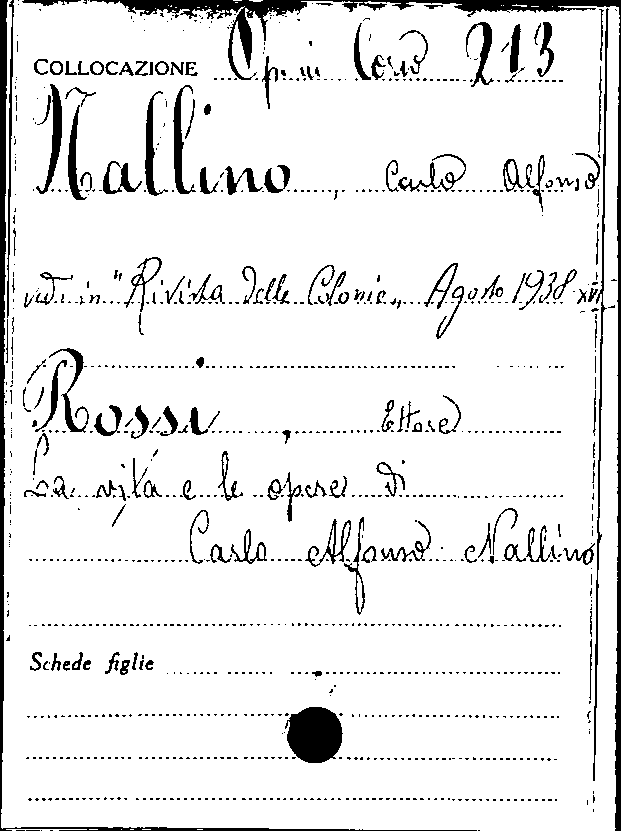 COLLOCAZIONE Op. in Corso 213
Nallino, Carlo Alfonso
vedi in "Rivista delle Colonie„ Agosto 1938 XVI
Rossi, Ettore
La vita e le opere di
Carlo Alfonso Nallino
Schede figlie